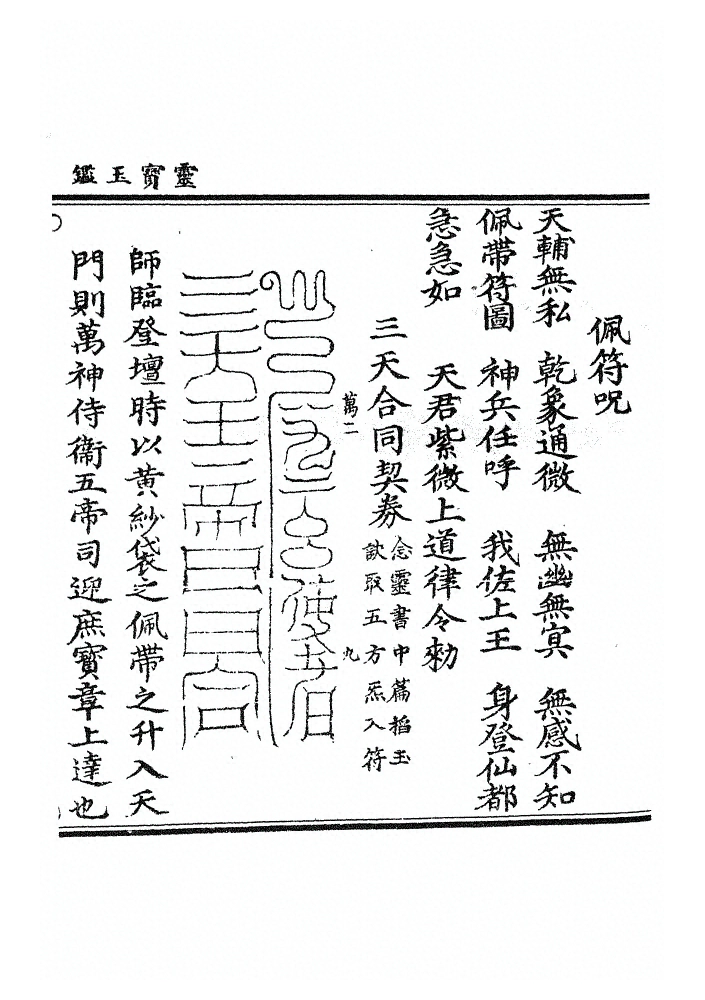 靈寶玉鑑
佩符呪
天輔無私　乾象通微　無幽無冥　無感不知
佩帶符圖　神兵任呼　我佐上王　身登仙都
急急如　天君紫微上道律令勑
三天合同契券
念靈書中篇掐玉
訣取五方炁入符
萬二
九
師臨登壇時以黃紗袋之佩帶之升入天
門則萬神侍衛五帝司迎庶寶章上達也